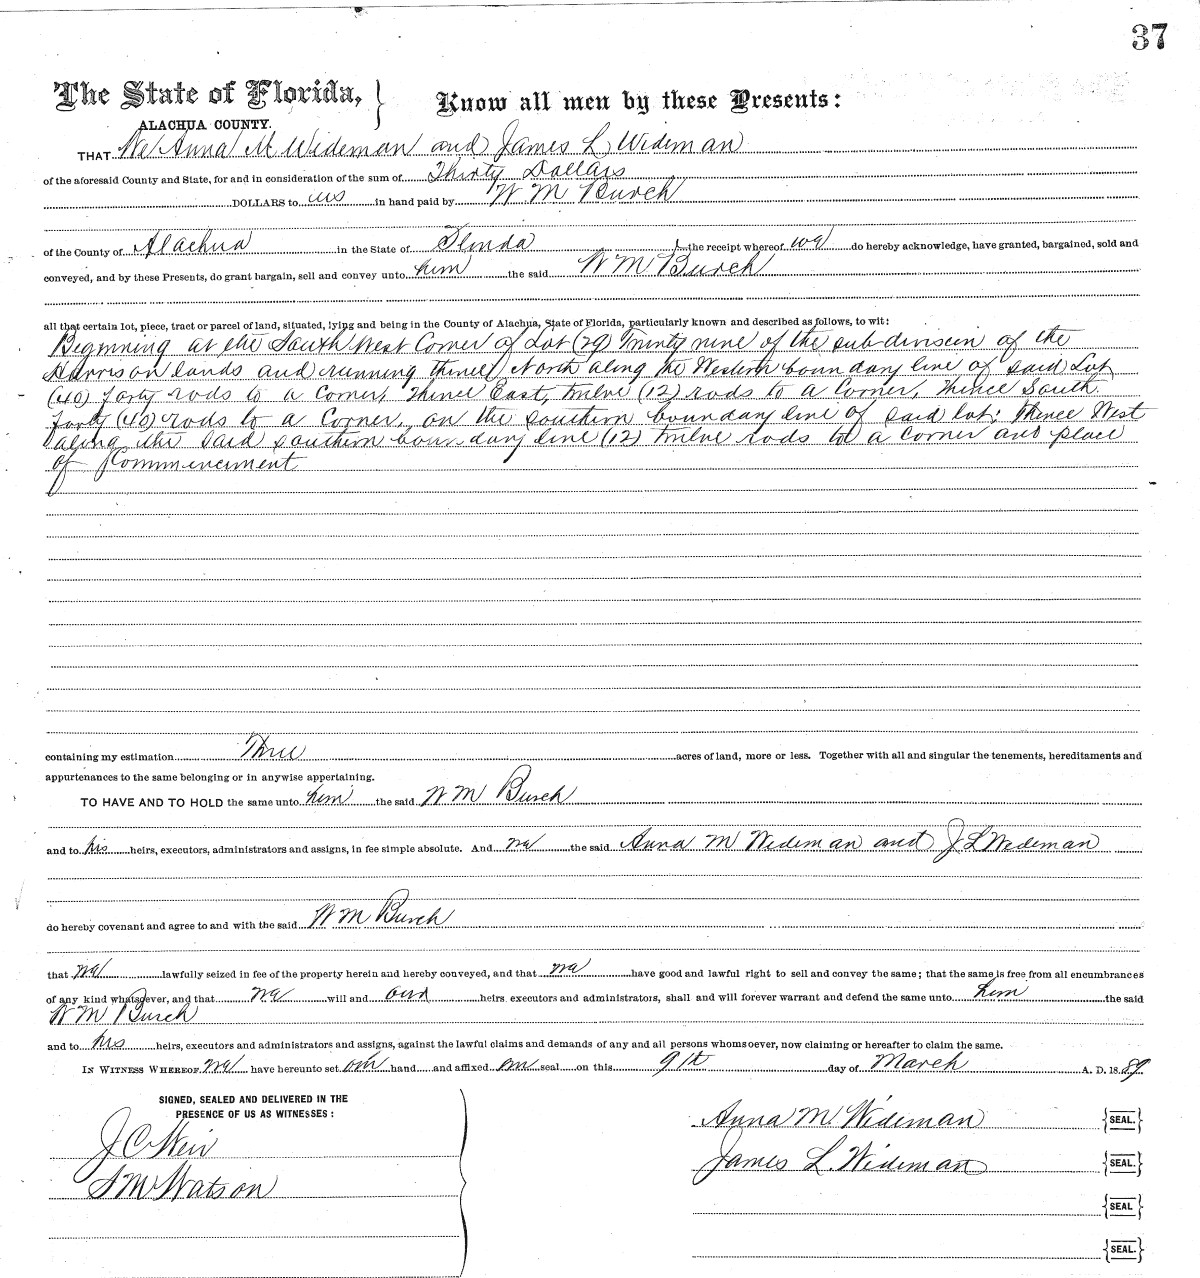 37
The State of Florida, } Know all men by these Presents:
ALACHUA COUNTY.
THAT We Anna M Wideman and James L Wideman
of the aforesaid County and State, for and in consideration of the sum of Thirty Dollars
DOLLARS to us in hand paid by W. M Burch
of the County of Alachua in the State of Florida the receipt whereof we do hereby acknowledge, have granted, bargained, sold and
conveyed, and by these Presents, do grant bargain, sell and convey unto him the said W M Burch
all that certain lot, piece, tract or parcel of land, situated, lying and being in the County of Alachua, State of Florida, particularly known and described as follows, to wit:
Beginning at the South West Corner of Lot (29) Twenty nine of the sub-division of the
Harrison lands and running thence North along the Western boundary line of said Lot
(40) forty rods to a Corner, thence East, twelve (12) rods to a Corner, Thence South
forty (40) rods to a Corner, on the southern boundary line of said lot; thence West
along the said southern boundary line (12) twelve rods to a corner and place
of Commencement
containing my estimation Three acres of land, more or less. Together with all and singular the tenements, hereditaments and
appurtenances to the same belonging or in anywise appertaining.
TO HAVE AND TO HOLD the same unto him the said W M Burch
and to his heirs, executors, administrators and assigns, in fee simple absolute. And we the said Anna M Wideman and J L Wideman
do hereby covenant and agree to and with the said W M Burch
that we lawfully seized in fee of the property herein and hereby conveyed, and that we have good and lawful right to sell and convey the same; that the same is free from all encumbrances
of any kind whatsoever, and that we will and our heirs executors and administrators, shall and will forever warrant and defend the same unto him the said
W M Burch
and to his heirs, executors and administrators and assigns, against the lawful claims and demands of any and all persons whomsoever, now claiming or hereafter to claim the same.
IN WITNESS WHEREOF, we have hereunto set our hand and affixed our seal on this 9th day of March A. D. 1889
SIGNED, SEALED AND DELIVERED IN THE
PRESENCE OF US AS WITNESSES:
Anna M. Wideman {SEAL.}
J C Weir
James L. Wideman {SEAL.}
S M Watson
{SEAL}
{SEAL.}